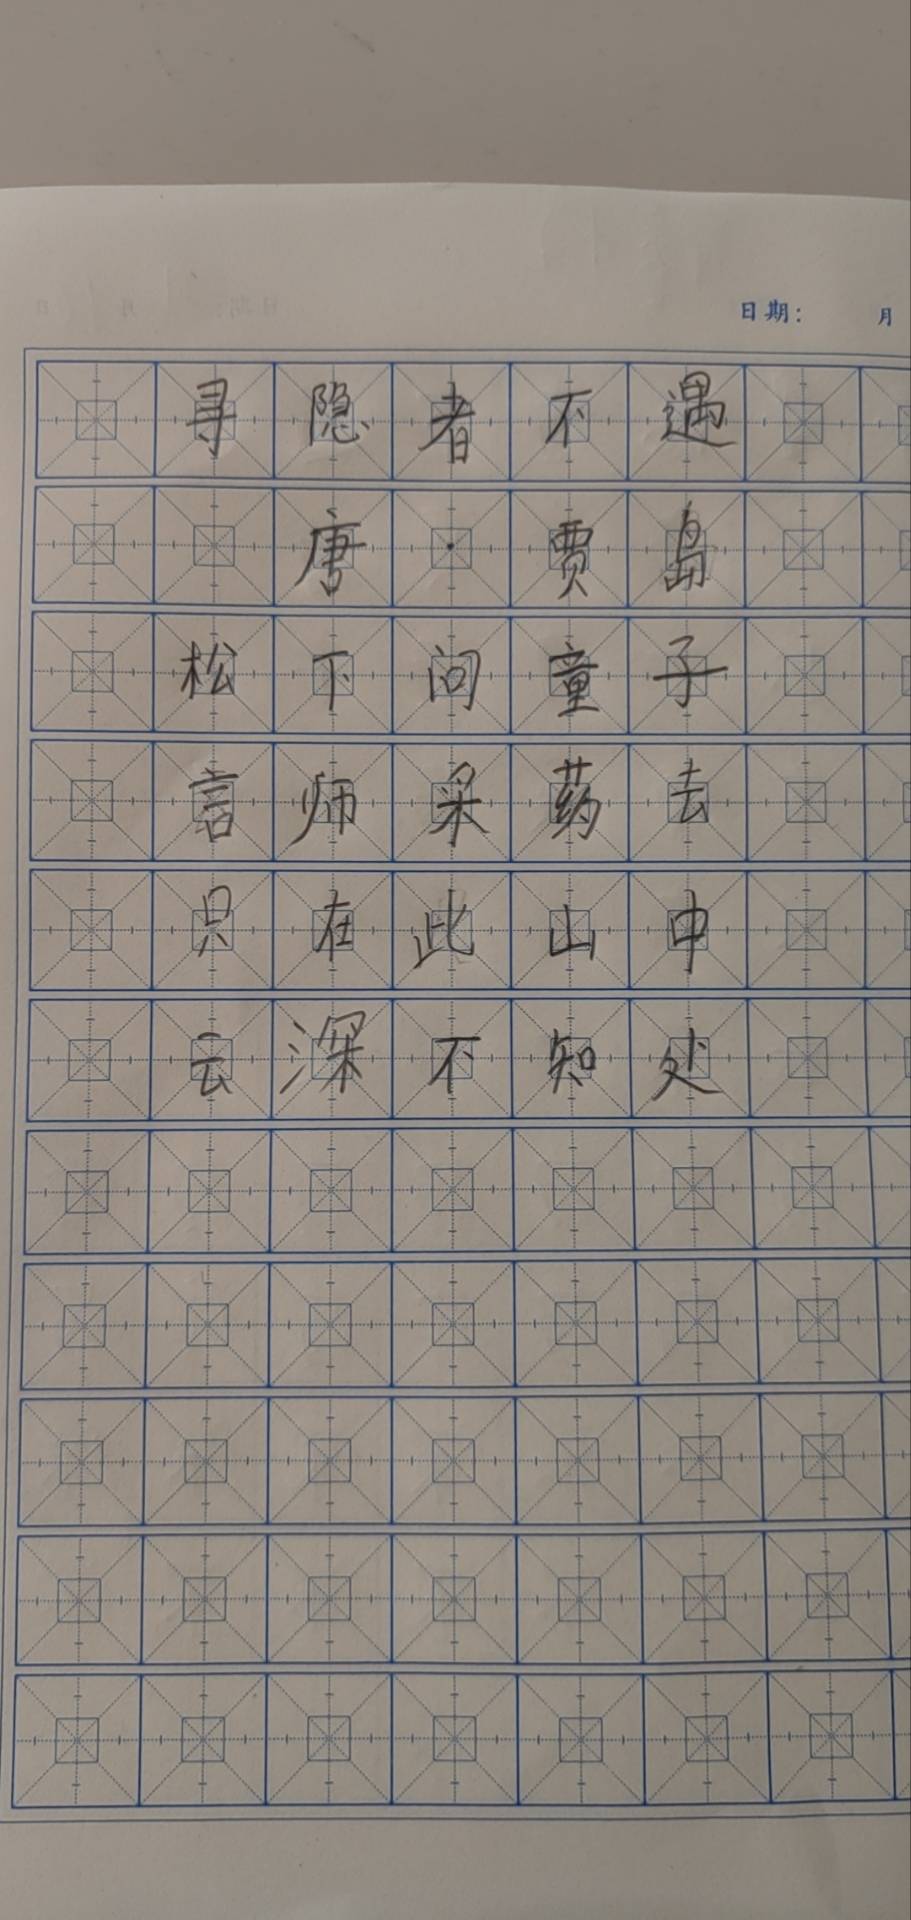 日期： 月
寻隐者不遇
唐·贾岛
松下问童子
言师采药去
只在此山中
云深不知处